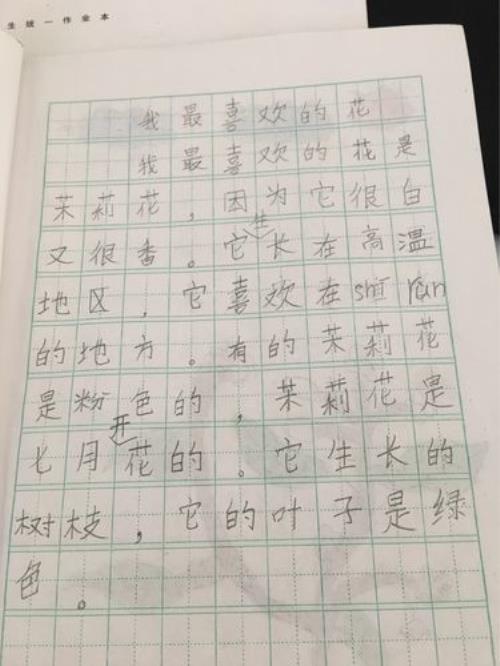 生统一作业本
我最喜欢的花
我最喜欢的花是
茉莉花，因为它很白
又很香。它生长在高温
地区，它喜欢在shī rùn
的地方。有的茉莉花
是粉色的，茉莉花是
七月开花的。它生长的
树枝，它的叶子是绿
色。